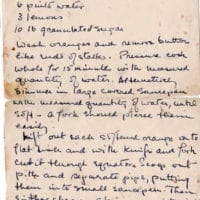 6 pints water
3 lemons
10 lb granulated sugar
Wash oranges and remove button
like ends of stalks. Pressure cook
whole for 15 minutes with measured
quantity of water. Alternatively
simmer in large covered saucepan
with measured quantity of water, until
soft - a fork should pierce them
easily.
Lift out each softened orange on to
flat dish and with knife and fork
cut it through equator. Scoop out
pith and separate pips, putting
them into small saucepan. Then